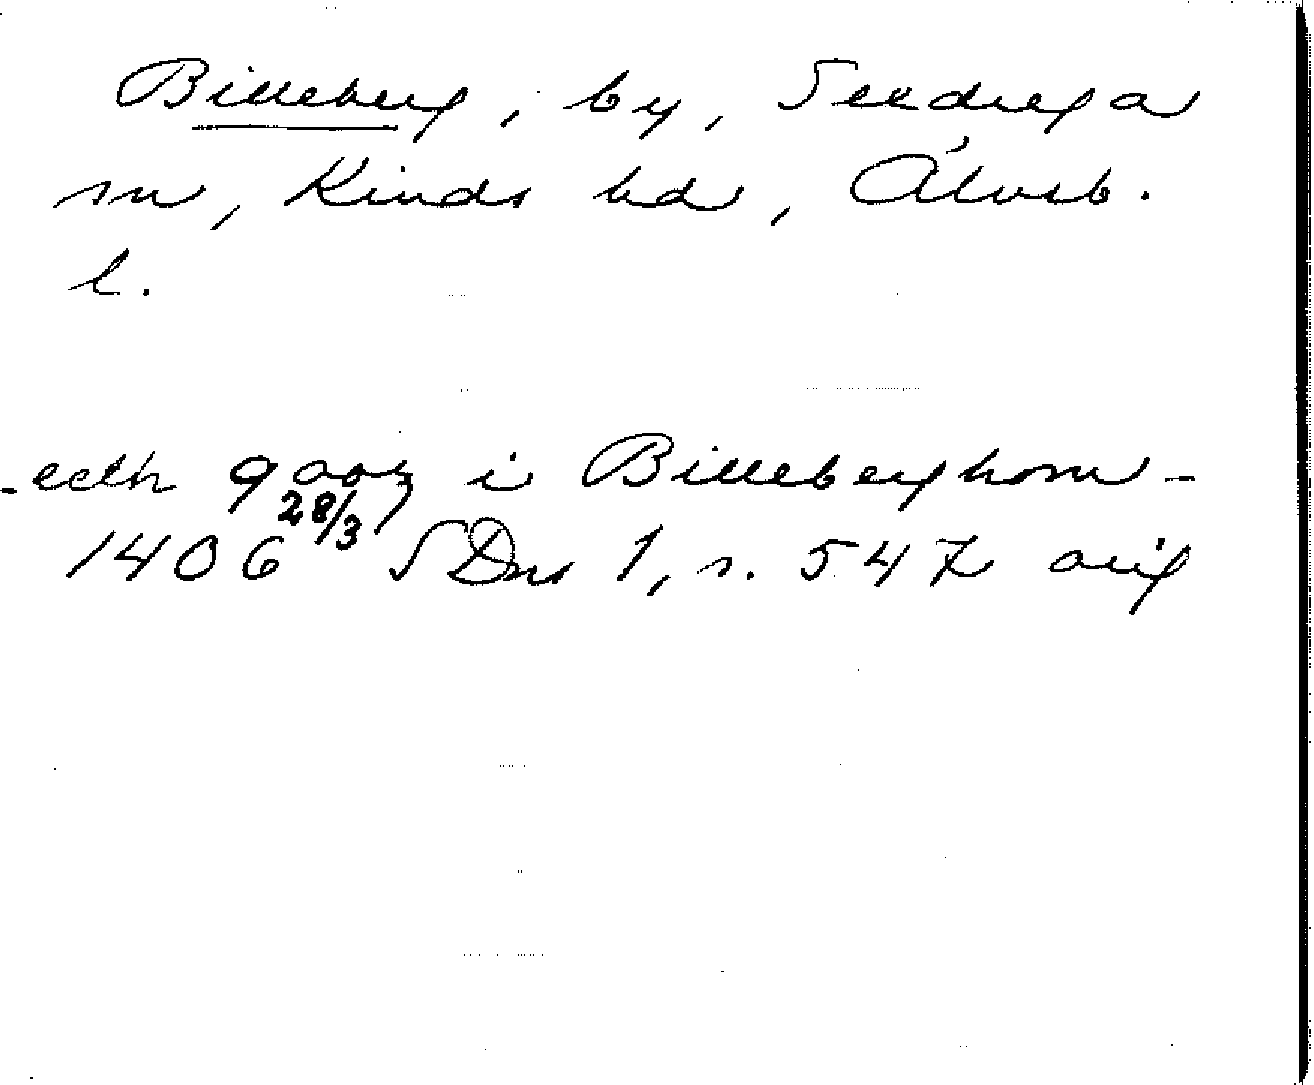 Billeberg, by, Seedrega
sn, Kinds hd, Älvsb.
l.
- eeth gooz i Billeberghom -
1406 28/3 SDns 1, s. 547 orig